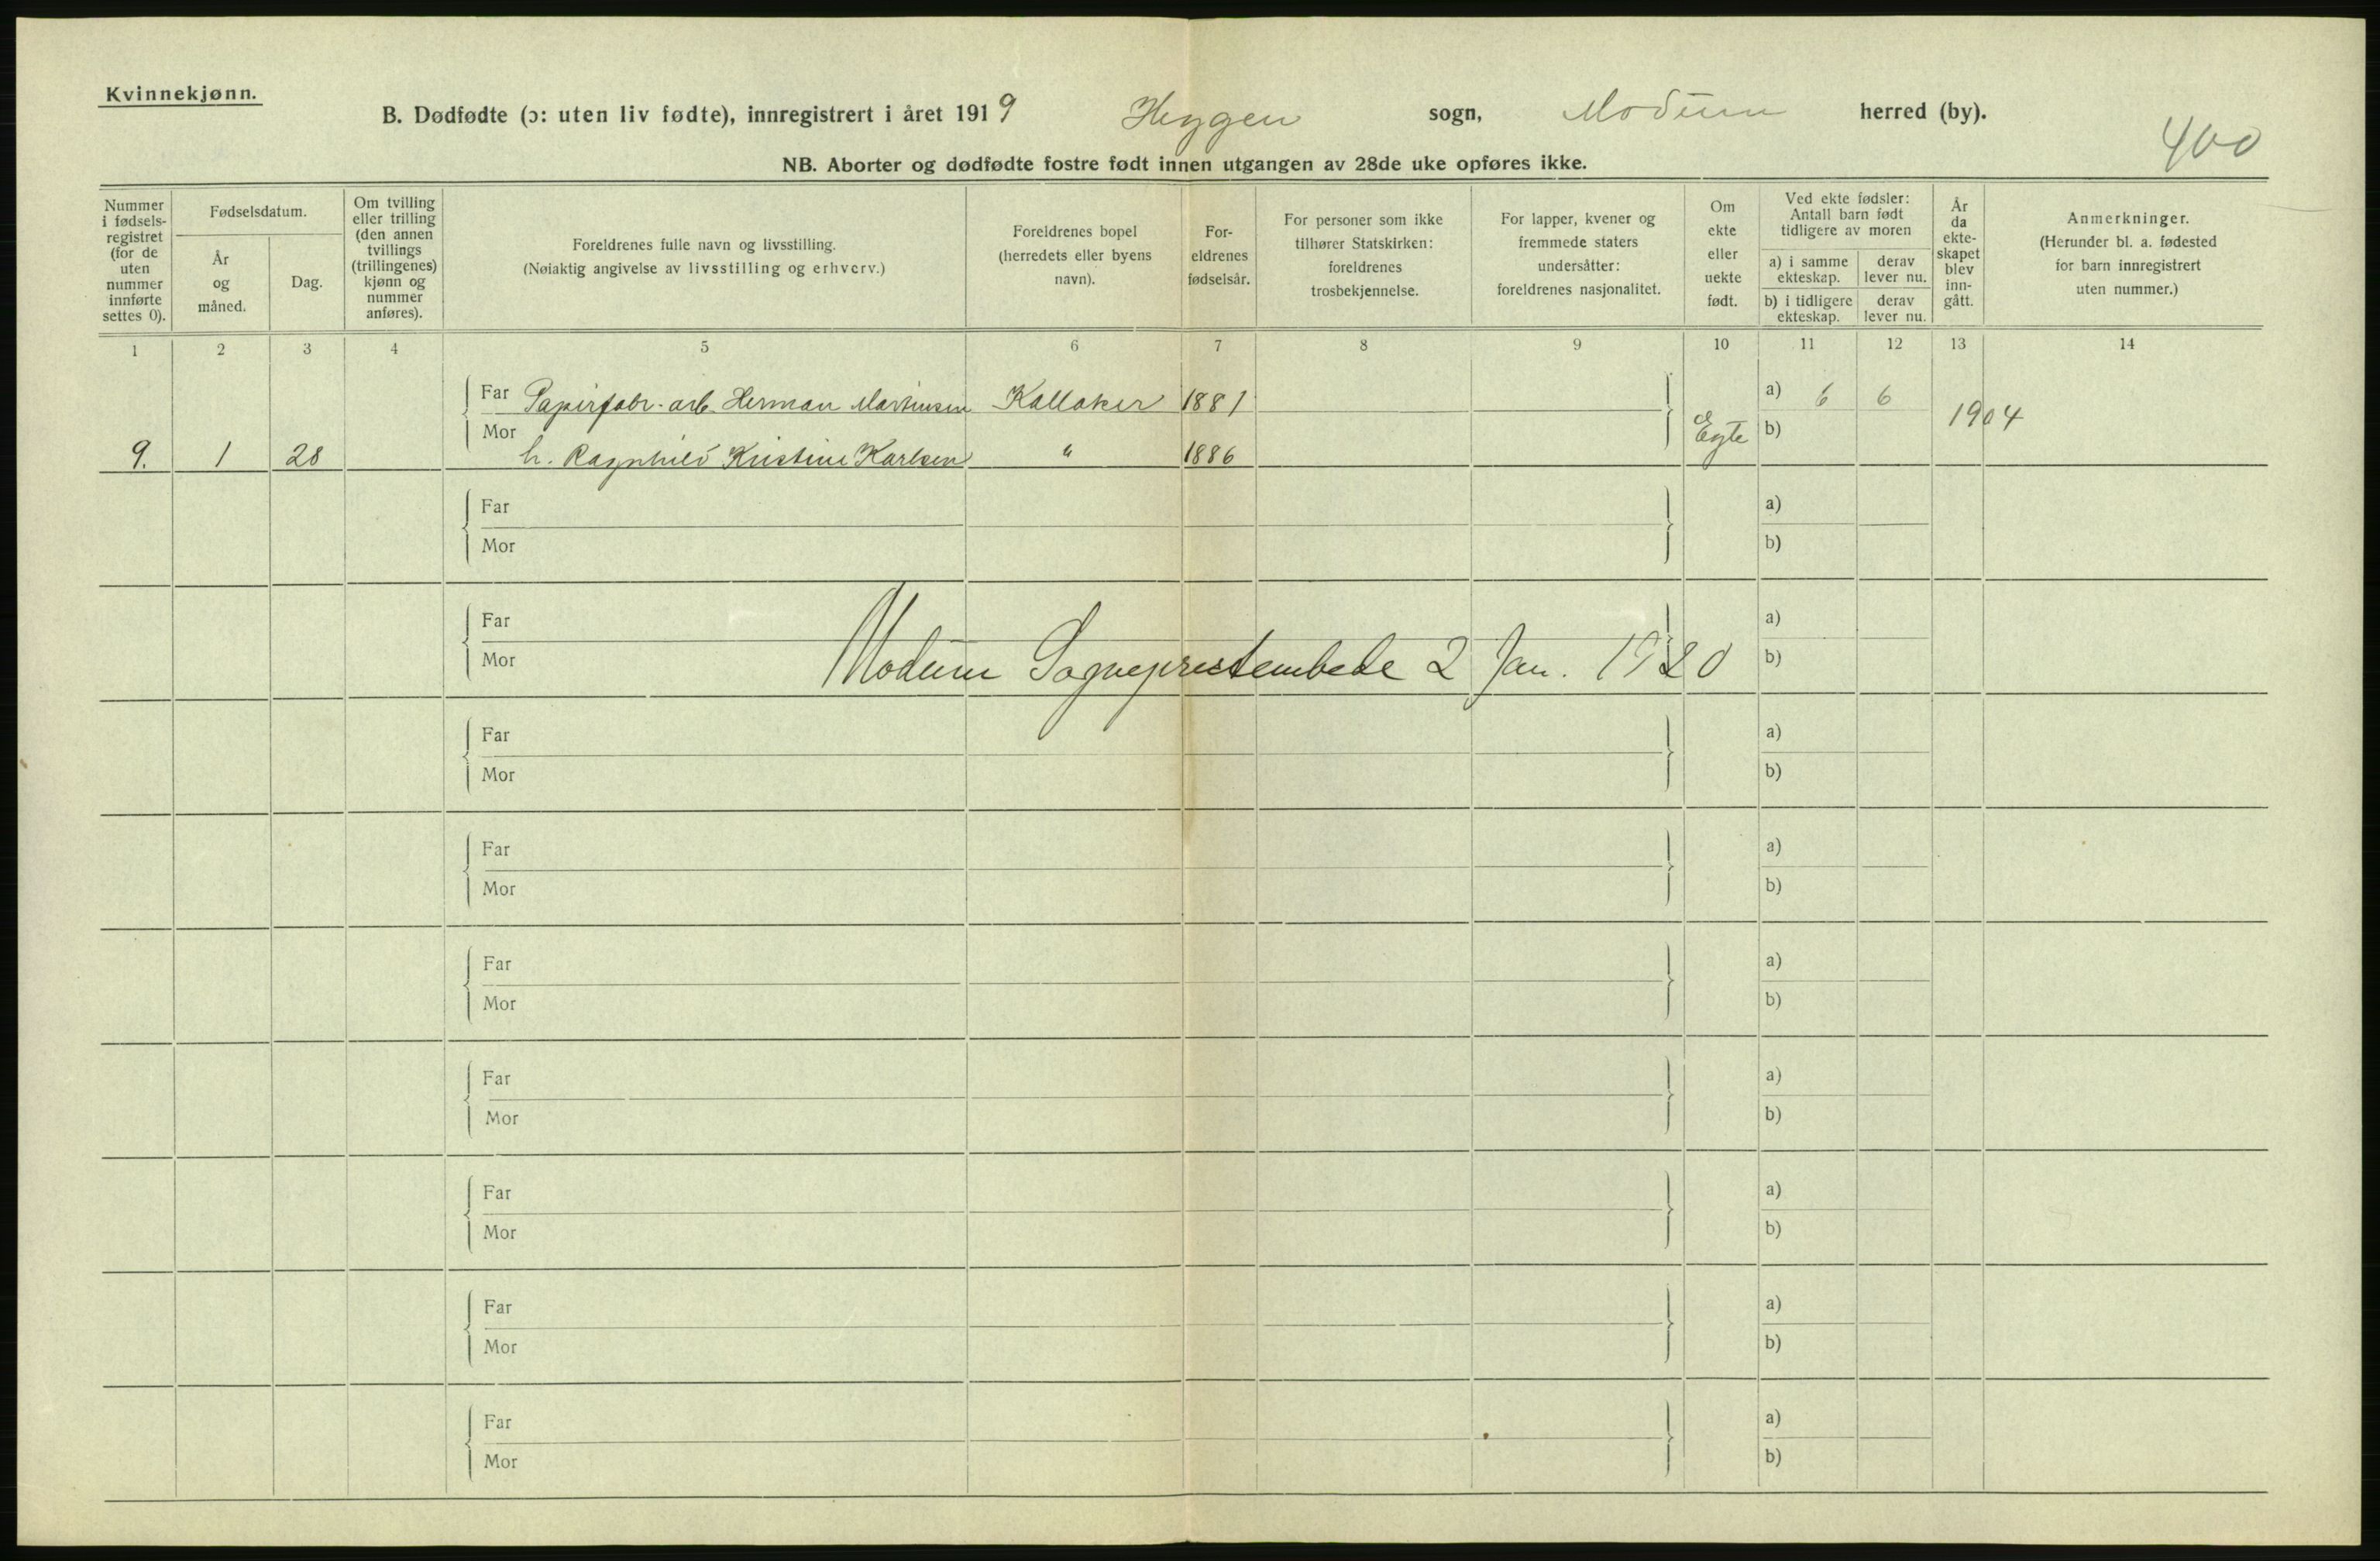 Kvinnekjønn.
B. Dødfødte (ɔ: uten liv fødte), innregistrert i året 1919 Heggen sogn, Modum herred (by).
400
NB. Aborter og dødfødte fostre født innen utgangen av 28de uke opføres ikke.
Nummer i fødsels-registret (for de uten nummer innførte settes 0).
Fødselsdatum.
År og måned.
Dag.
Om tvilling eller trilling (den annen tvillings (trillingenes) kjønn og nummer anføres).
Foreldrenes fulle navn og livsstilling.
(Nøiaktig angivelse av livsstilling og erhverv.)
Foreldrenes bopel (herredets eller byens navn).
For-eldrenes fødselsår.
For personer som ikke tilhører Statskirken: foreldrenes trosbekjennelse.
For lapper, kvener og fremmede staters undersåtter: foreldrenes nasjonalitet.
Om ekte eller uekte født.
Ved ekte fødsler: Antall barn født tidligere av moren
a) i samme ekteskap. derav lever nu.
b) i tidligere ekteskap. derav lever nu.
År da ekte-skapet blev inn-gått.
Anmerkninger.
(Herunder bl. a. fødested for barn innregistrert uten nummer.)
1 2 3 4 5 6 7 8 9 10 11 12 13 14
Far Papirfabr.-arb. Herman Martinsen Kolloker 1881 a) 6 6 1904
9. 1 28 Mor h. Ragnhild Kristine Karlsen " 1886 Egte b)
Far a)
Mor b)
Far a)
Mor Modum Sogneprestembede 2 Jan. 1920 b)
Far a)
Mor b)
Far a)
Mor b)
Far a)
Mor b)
Far a)
Mor b)
Far a)
Mor b)
Far a)
Mor b)
Far a)
Mor b)